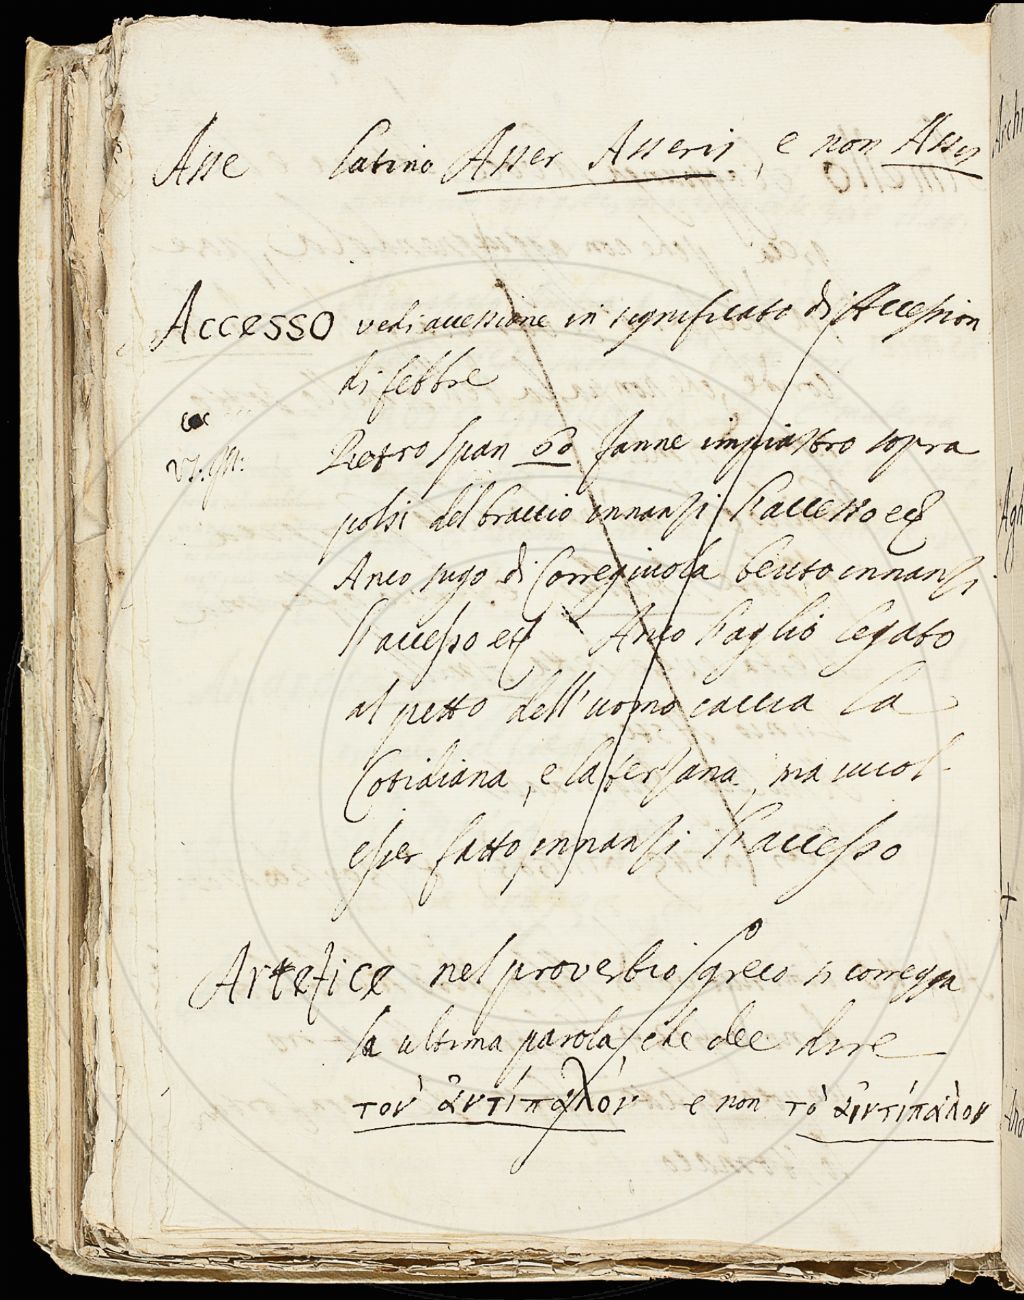 Asse latino Asser Asseris, e non Assis
Accesso vedi accessione in significato di Accession
di febbre
Pietro Span 60 fanne impiastro sopra
polsi del braccio innanzi l'accesso ec.
Anco sugo di Corregiuola beuto innanzi
l'accesso ec. Anco l'aglio legato
al petto dell'uomo caccia la
Cotidiana, e la terzana, ma vuol
esser fatto innanzi l'accesso
Artefice nel proverbio greco si corregga
la ultima parola, che dee dire
τον ἀντίπαλον e non τὸ ἀντίπαλον